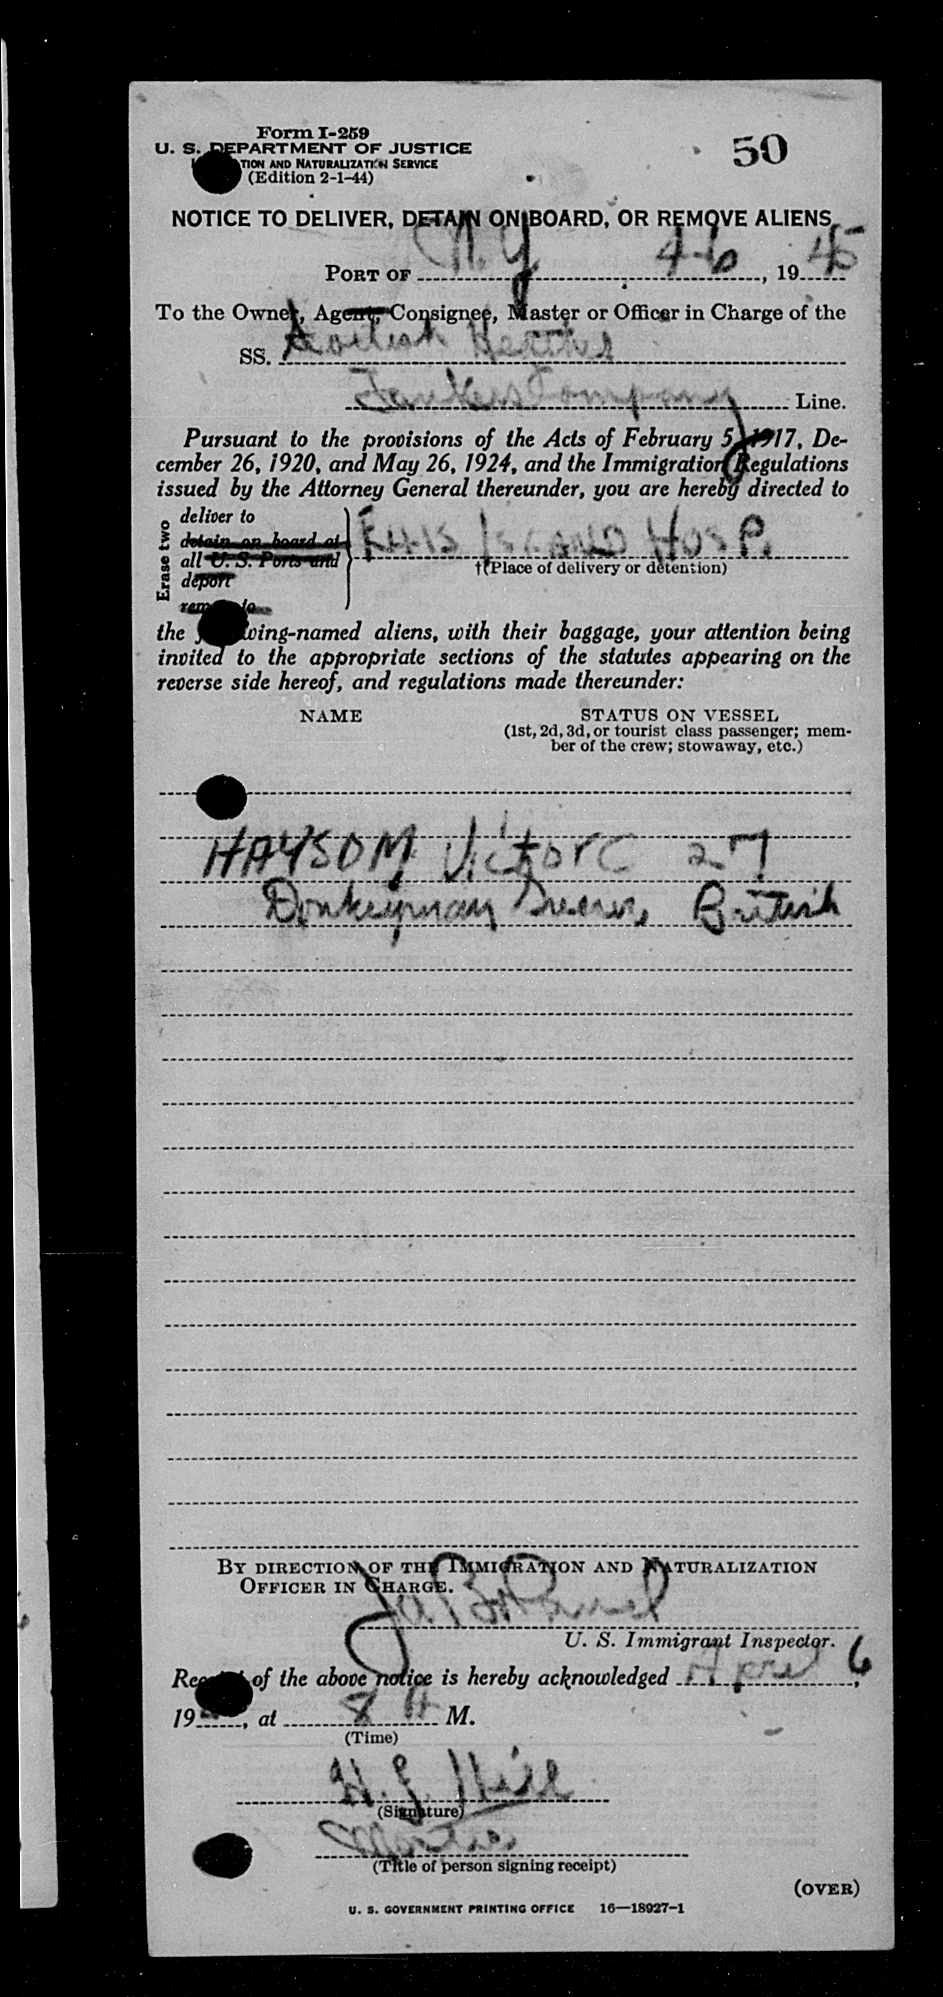 Form I-259
50
U. S. DEPARTMENT OF JUSTICE
TION AND NATURALIZATION SERVICE
(Edition 2-1-44)
NOTICE TO DELIVER, DETAIN ON BOARD, OR REMOVE ALIENS
PORT OF N.Y. 4-6, 1945
To the Owner, Agent, Consignee, Master or Officer in Charge of the
SS.
Tankers Company Line.
Pursuant to the provisions of the Acts of February 5, 1917, De-
cember 26, 1920, and May 26, 1924, and the Immigration Regulations
issued by the Attorney General thereunder, you are hereby directed to
Erase two
deliver to
detain on board at
all U. S. Ports and
deport
remove to
ELLIS ISLAND HOSP.
†(Place of delivery or detention)
the following-named aliens, with their baggage, your attention being
invited to the appropriate sections of the statutes appearing on the
reverse side hereof, and regulations made thereunder:
NAME
STATUS ON VESSEL
(1st, 2d, 3d, or tourist class passenger; mem-
ber of the crew; stowaway, etc.)
HAYSOM Victor C 27
Donkeyman British
BY DIRECTION OF THE IMMIGRATION AND NATURALIZATION
OFFICER IN CHARGE.
U. S. Immigrant Inspector.
Receipt of the above notice is hereby acknowledged April 6,
19, at 8 A M.
(Time)
H. J. Hill
(Signature)
(Title of person signing receipt)
(OVER)
U. S. GOVERNMENT PRINTING OFFICE 16—18927-1